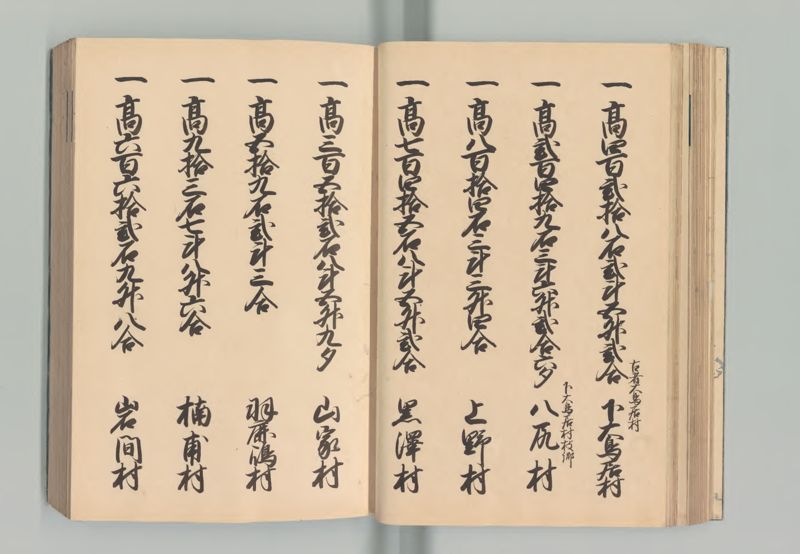 一 高四百弐拾八石弐斗五升弐合 下大鳥居村
古者大鳥居村
一 高弐百四拾九石三斗六升弐合六夕 八尻村
下大鳥居村枝郷
一 高八百拾四石三斗三升四合 上野村
一 高七百四拾五石八斗五升弐合 黒澤村
一 高三百五拾弐石八斗五升九夕 山家村
一 高五拾九石弐斗三合 羽鹿嶋村
一 高九拾三石七斗八升六合 楠甫村
一 高六百六拾弐石九升八合 岩間村